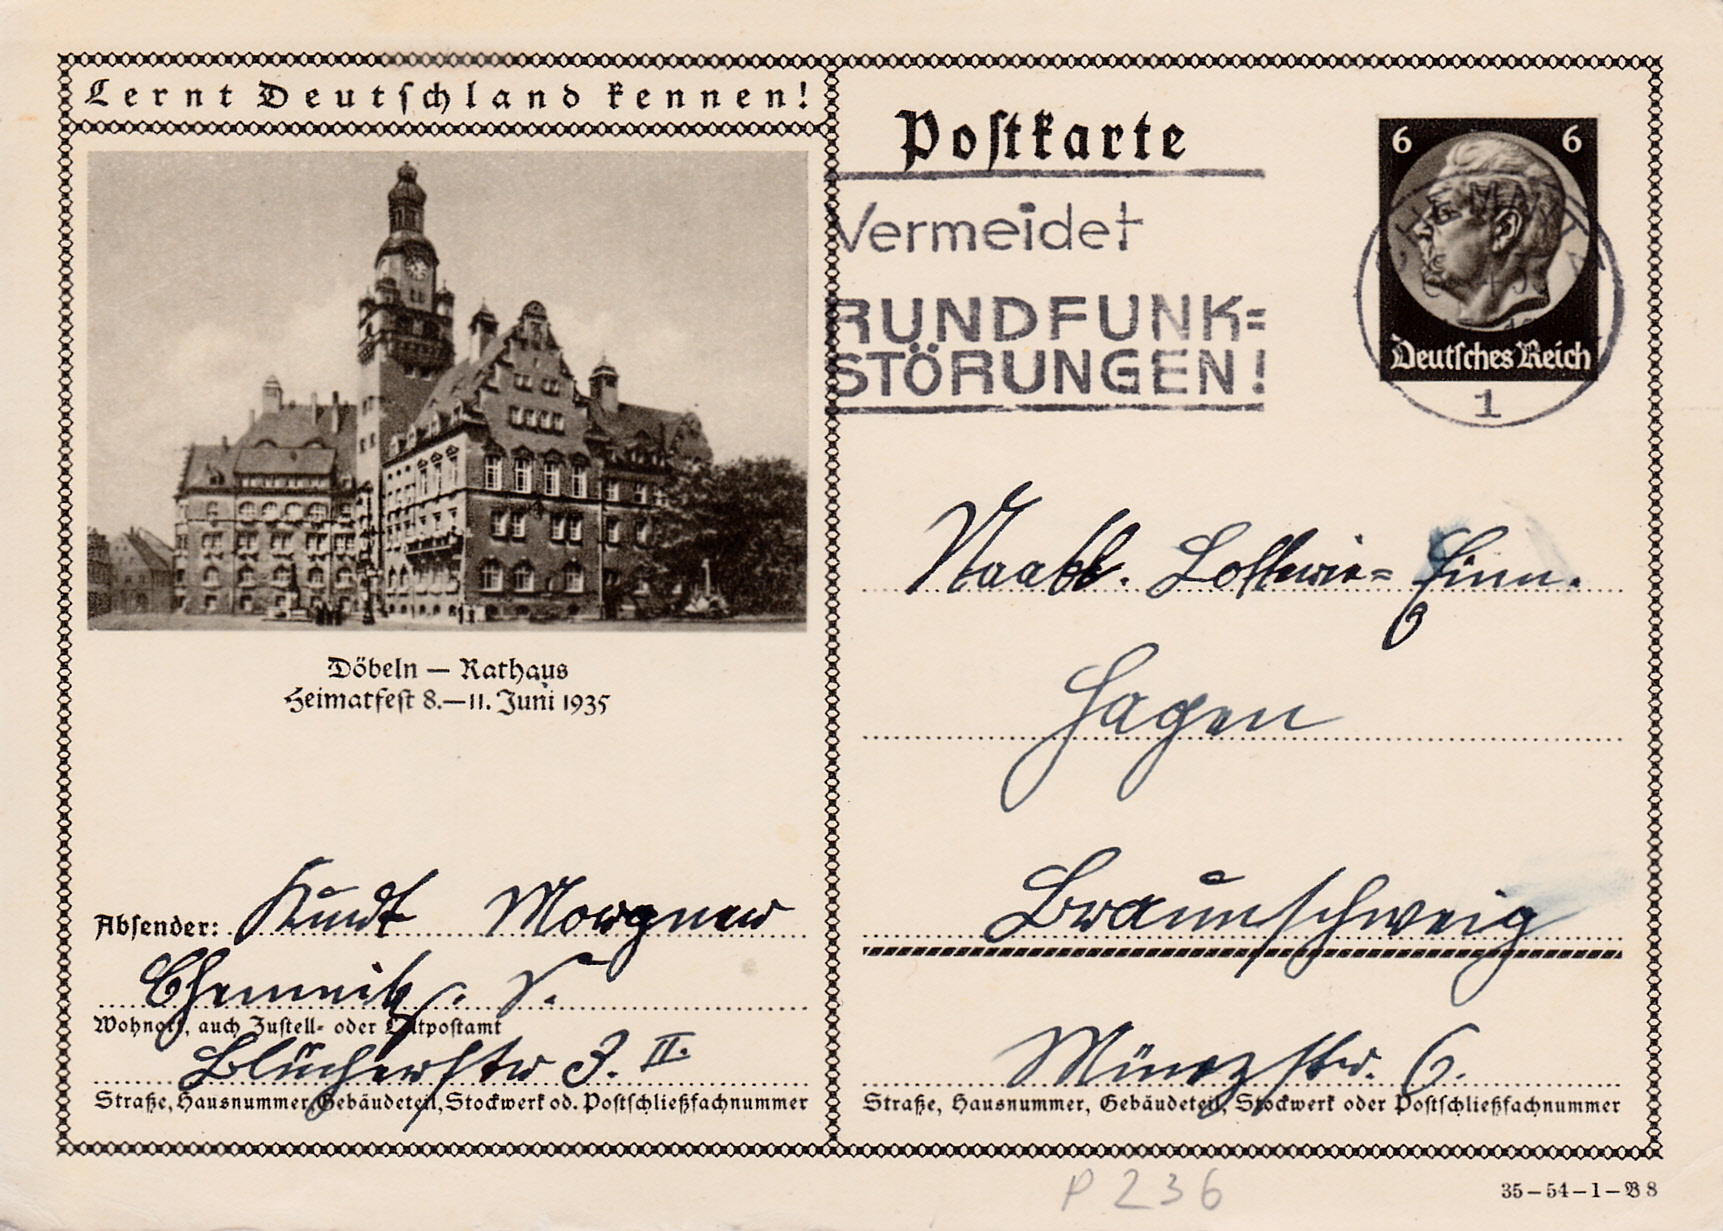 Lernt Deutschland kennen!
Döbeln — Rathaus
Heimatfest 8.—11. Juni 1935
Absender: Kurdt Morgner
Chemnitz. S.
Wohnort, auch Zustell- oder Leitpostamt
Blücherstr 3. II.
Straße, Hausnummer, Gebäudeteil, Stockwerk od. Postschließfachnummer
Postkarte
Vermeidet
RUNDFUNK=
STÖRUNGEN!
6 6
Deutsches Reich
1
Staatl. Lotterie= Einn.
Hagen
Braunschweig
Münzstr. 6.
Straße, Hausnummer, Gebäudeteil, Stockwerk oder Postschließfachnummer
P 236
35–54–1–B 8